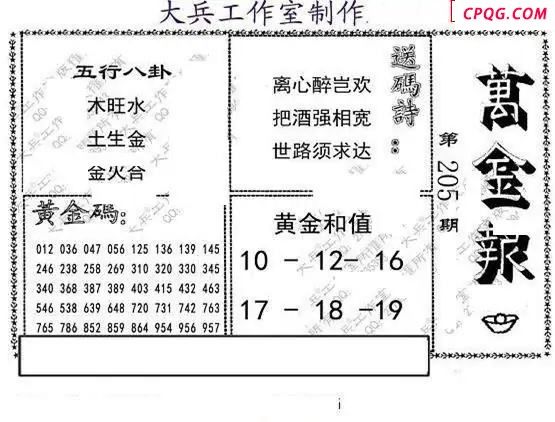 大兵工作室制作
CPQG.COM
五行八卦
木旺水
土生金
金火合
送碼詩：
离心醉岂欢
把酒强相宽
世路须求达
萬金報
第205期
黃金碼：
012 036 047 056 125 136 139 145
246 238 258 269 310 320 330 345
340 368 387 389 403 415 432 463
546 538 639 648 720 731 742 763
765 786 852 859 864 954 956 957
黄金和值
10 - 12- 16
17 - 18 -19
i